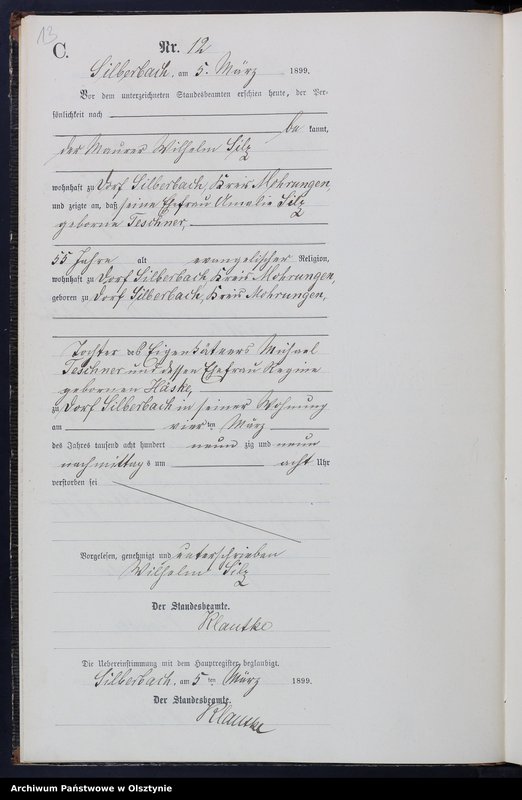 13
C.
Nr. 12
Silberbach, am 5. März 1899.
Vor dem unterzeichneten Standesbeamten erschien heute, der Per-
sönlichkeit nach
be kannt,
der Maurer Wilhelm Silz
wohnhaft zu Dorf Silberbach, Kreis Mohrungen
und zeigte an, daß seine Ehefrau Amalie Silz
geborne Teschner,
55 Jahre alt evangelischer Religion,
wohnhaft zu Dorf Silberbach, Kreis Mohrungen,
geboren zu Dorf Silberbach, Kreis Mohrungen,
Tochter des Eigenkätners Michael
Teschner und dessen Ehefrau Regine
gebornen Häske,
zu Dorf Silberbach in seiner Wohnung
am vierten März
des Jahres tausend acht hundert neun zig und neun
nachmittag s um acht Uhr
verstorben sei
Vorgelesen, genehmigt und unterschrieben
Wilhelm Silz
Der Standesbeamte.
Klautke
Die Uebereinstimmung mit dem Hauptregister beglaubigt.
Silberbach, am 5ten März 1899.
Der Standesbeamte.
Klautke
Archiwum Państwowe w Olsztynie